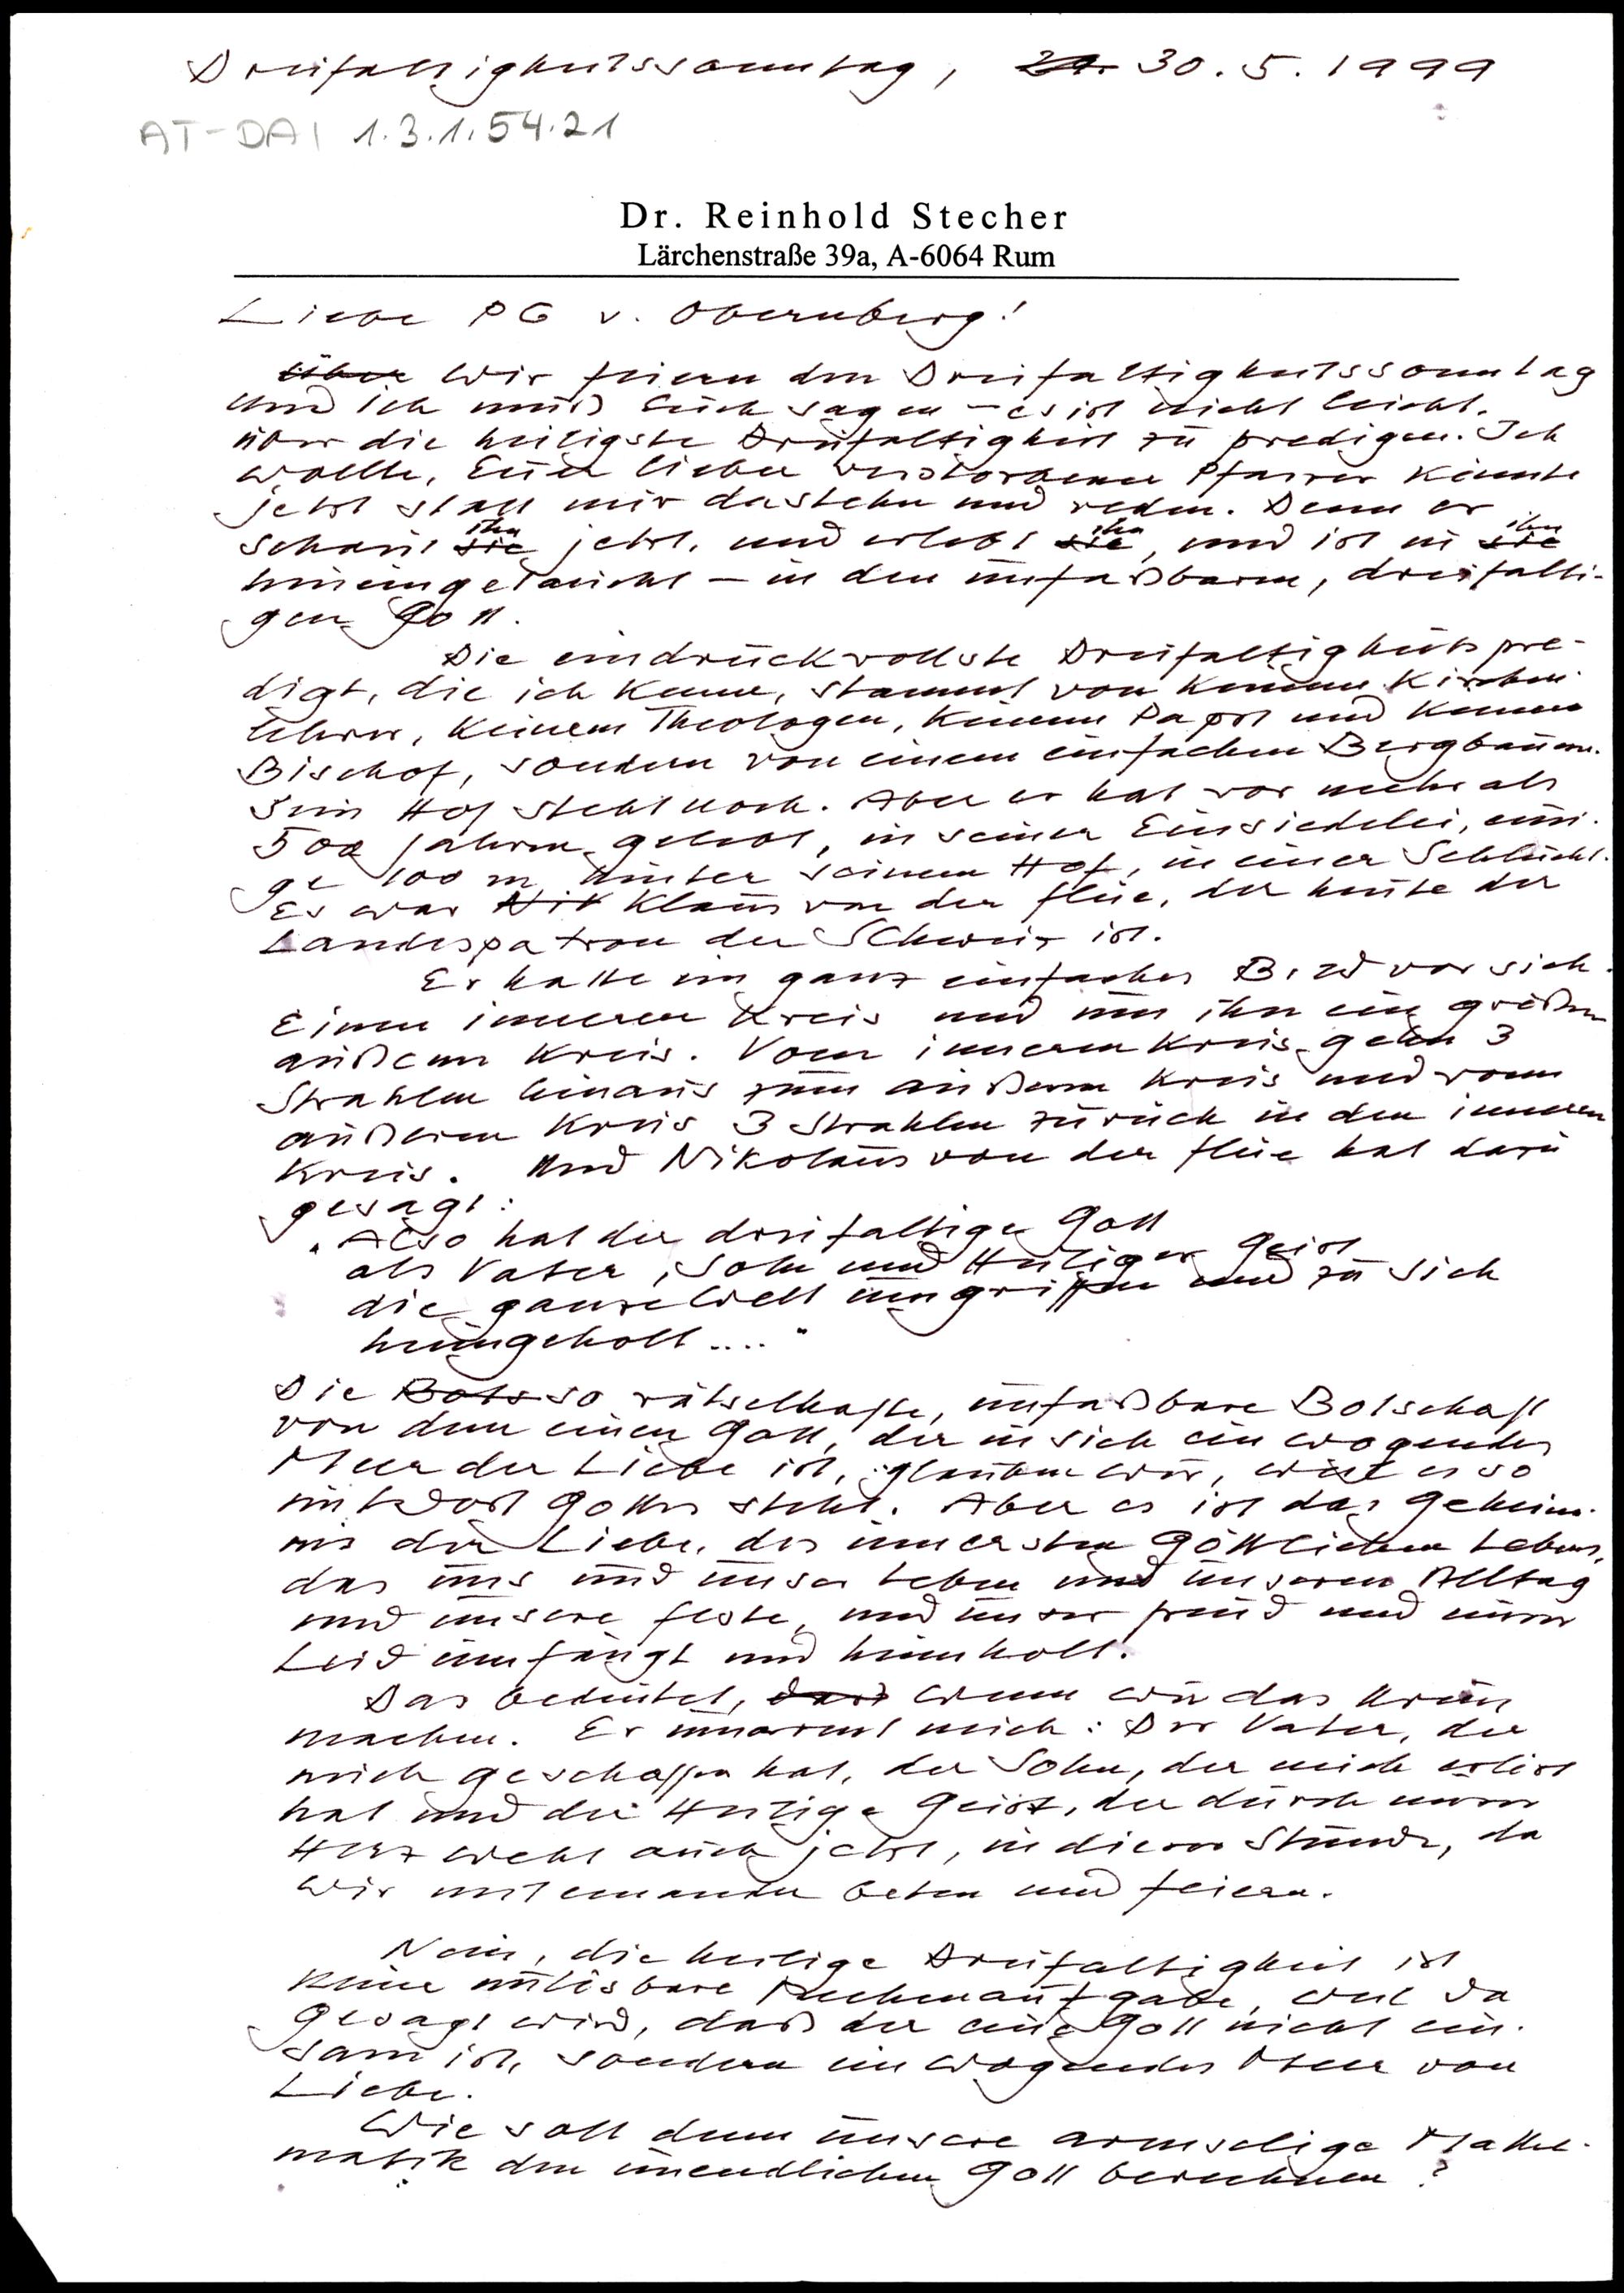 Dreifaltigkeitssonntag, 29. 30.5.1999
AT-DAI 1.3.1.54.21
Dr. Reinhold Stecher
Lärchenstraße 39a, A-6064 Rum
Liebe PG v. Obernberg!
über Wir feiern den Dreifaltigkeitssonntag
und ich muß Euch sagen - es ist nicht leicht,
über die heiligste Dreifaltigkeit zu predigen. Ich
wollte, Euer lieber verstorbener Pfarrer könnte
jetzt statt mir dastehn und reden. Denn er
schaut sie ihn jetzt, und erlebt sie ihn, und ist in sie ihn
hineingetaucht - in den unfaßbaren, dreifalti-
gen Gott.
Die eindruckvollste Dreifaltigkeitspre-
digt, die ich kenne, stammt von keinem Kirchen-
lehrer, keinem Theologen, keinem Papst und keinem
Bischof, sondern von einem einfachen Bergbauern.
Sein Hof steht noch. Aber er hat vor mehr als
500 Jahren gelebt, in seiner Einsiedelei, eini-
ge 100 m hinter seinem Hof, in einer Schlucht.
Es war Nik Klaus von der Flüe, der heute der
Landespatron der Schweiz ist.
Er hatte ein ganz einfaches Bild vor sich.
Einen inneren Kreis und um ihn ein größeren
äußeren Kreis. Vom inneren Kreis gehn 3
Strahlen hinaus zum äußeren Kreis und vom
äußeren Kreis 3 Strahlen zurück in den inneren
Kreis. Und Nikolaus von der Flüe hat dazu
gesagt:
"Also hat der dreifaltige Gott
als Vater, Sohn und Heiliger Geist
die ganze Welt umgriffen und zu sich
heimgeholt...."
Die Bots so rätselhafte, unfaßbare Botschaft
von dem einen Gott, der in sich ein wogendes
Meer der Liebe ist, glauben wir, weil es so
im Wort Gottes steht. Aber es ist das Geheim-
nis der Liebe, des innersten göttlichen Lebens,
das uns und unser Leben und unseren Alltag
und unsere Feste, und unser Freud und unser
Leid umfängt und heimholt.
Das bedeutet, dass wenn wir das Kreuz
machen. Er umarmt mich: Der Vater, der
mich geschaffen hat, der Sohn, der mich erlöst
hat und der Heilige Geist, der durch unser
Herz weht auch jetzt, in dieser Stunde, da
wir miteinander beten und feiern.
Nein, die heilige Dreifaltigkeit ist
keine unlösbare Rechenaufgabe, weil da
gesagt wird, daß der eine Gott nicht ein-
sam ist, sondern ein wogendes Meer von
Liebe.
Wie soll denn unsere armselige Mathe-
matik den unendlichen Gott berechnen?